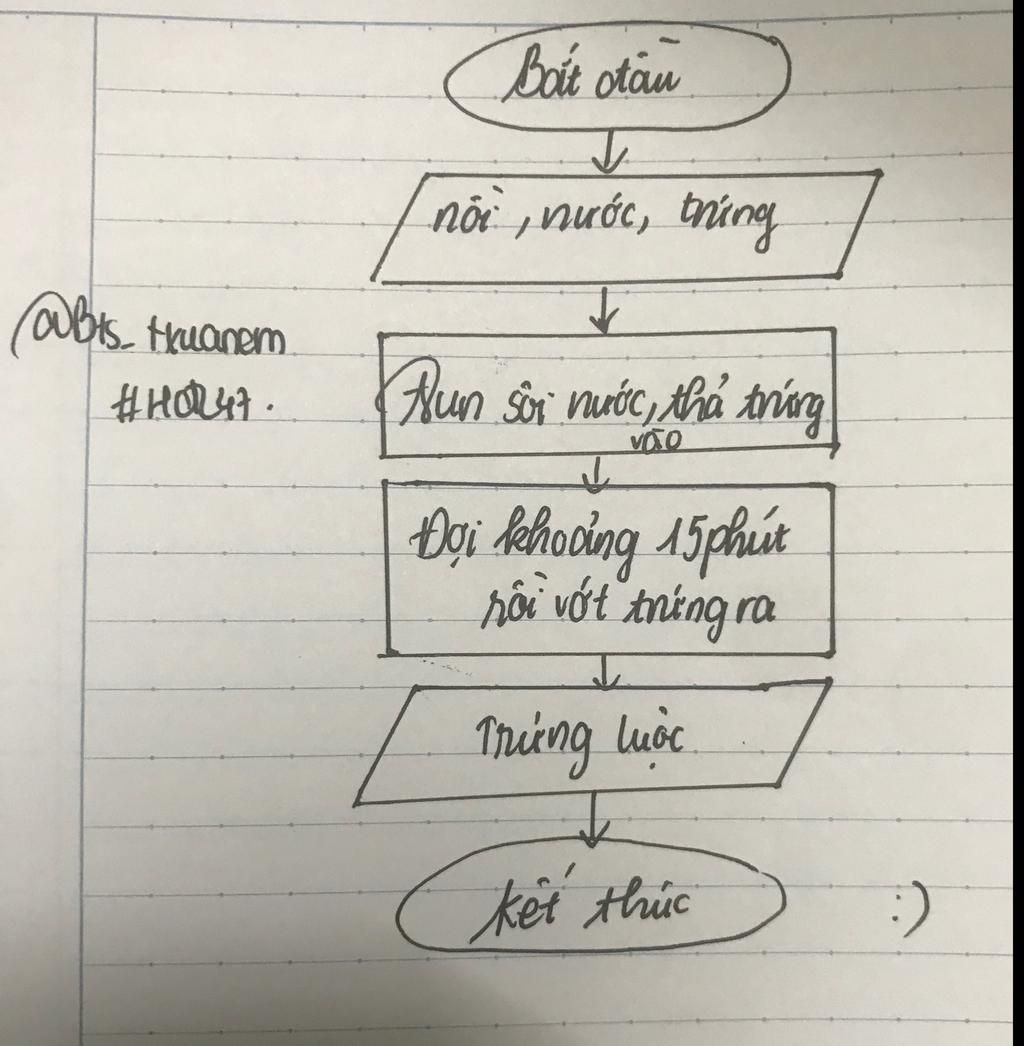 Bắt đầu
nồi, nước, trứng
@Bts_
#HOR47.
Đun sôi nước, thả trứng
vào
Đợi khoảng 15 phút
rồi vớt trứng ra
Trứng luộc
kết thúc
:)